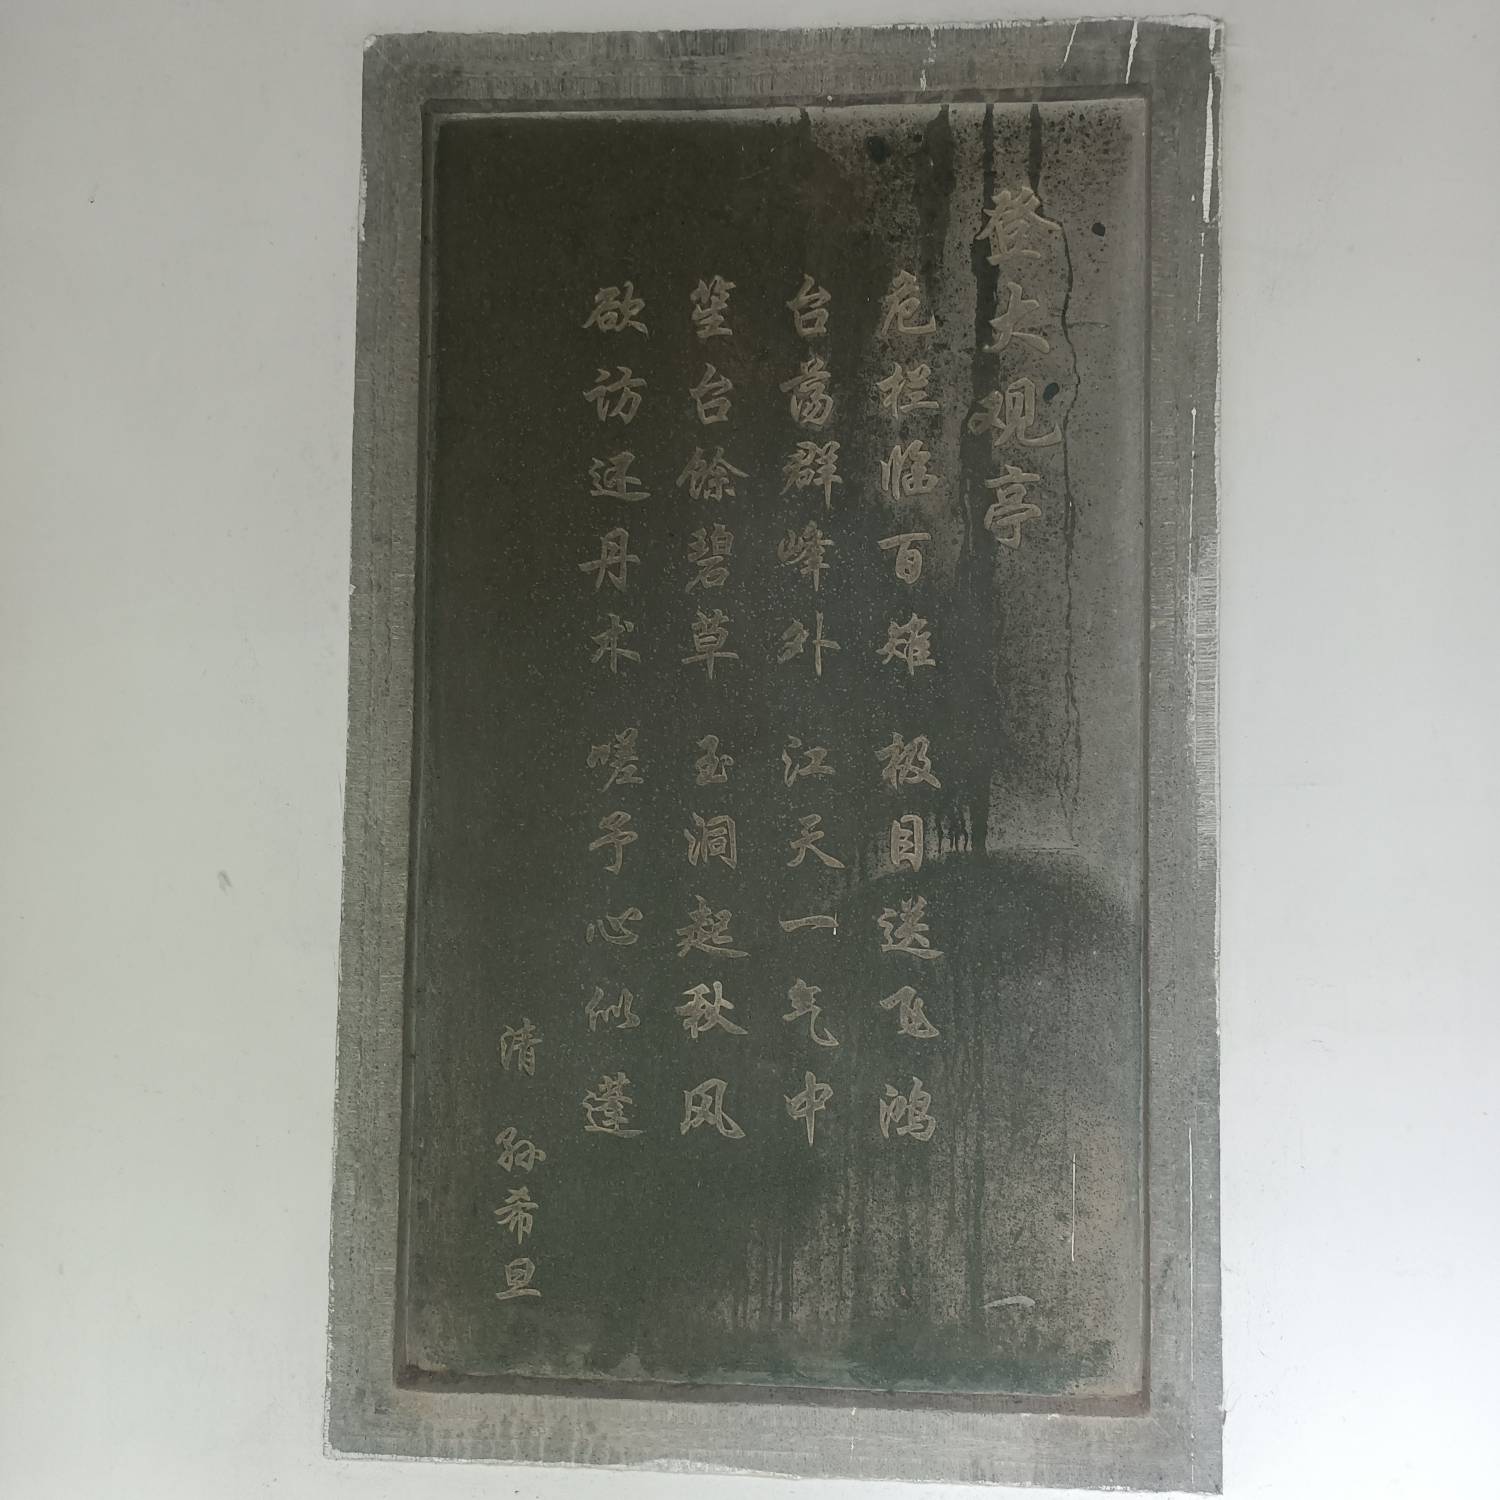 登大观亭 一
危栏临百雉 极目送飞鸿
台荡群峰外 江天一气中
笙台馀碧草 玉洞起秋风
欲访还丹术 嗟予心似蓬
清 孙希旦